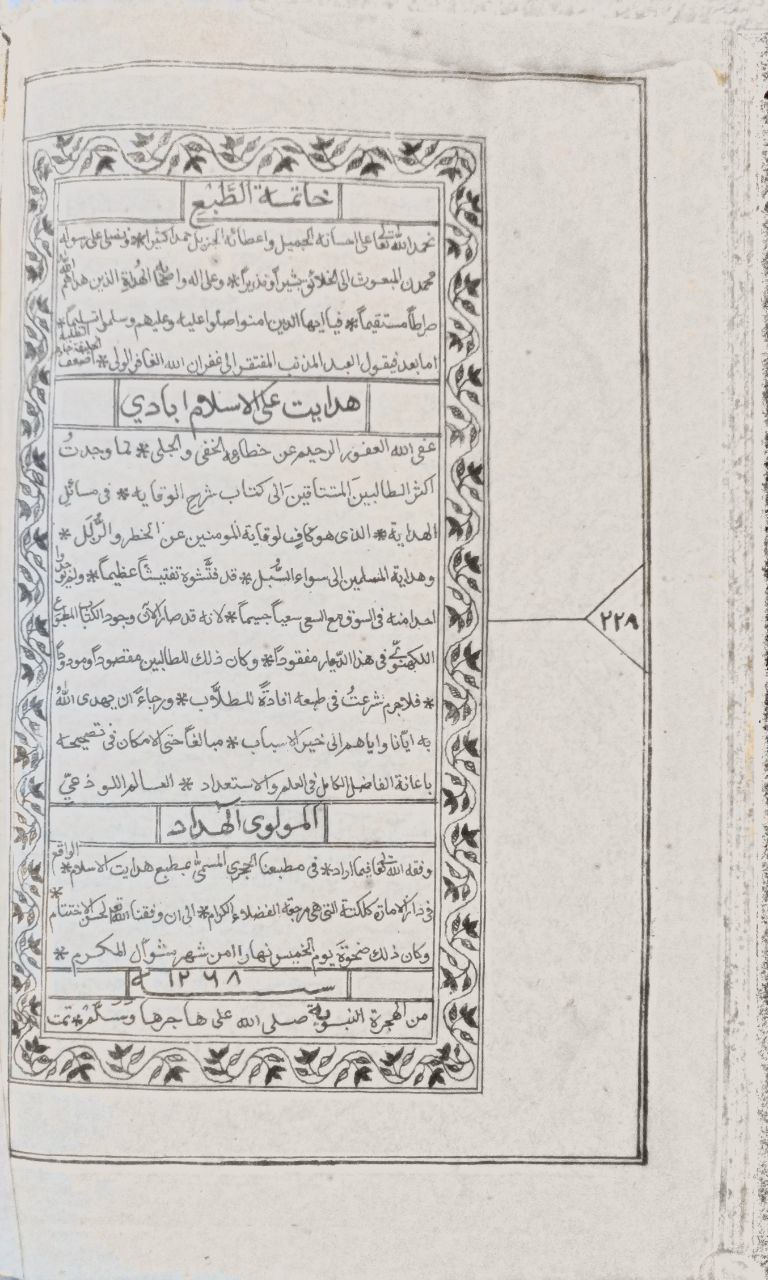 خاتمة الطَّبْع
نحمد الله تعالى على احسانه الجميل واعطائه الجزيل حمدا كثيرا * ونصلى على رسوله
محمدن المبعوث الى الخلائق بشيراً ونذيراً * وعلى اله واصحابه الهُداة الذين هداهم الله
صراطاً مستقيماً * فيا ايها الذين امنوا صلوا عليه وعليهم وسلموا تسليماً *
اما بعد فيقول العبد المذنب المفتقر الى غفران الله الغافر الولى * اضعف الخليقة خادم الطلبة
هدايت على الاسلام ابادي
عفى الله الغفور الرحيم عن خطائه الخفى والجلى * لما وجدتُ
اكثر الطالبينَ المشتاقينَ الى كتاب شرح الوقايه * فى مسائل
الهداية * الذى هو كافٍ لوقاية المومنين عن الخطر والزَّلل *
وهداية المسلمين الى سواء السُّبل * قد فتَّشوه تفتيشاً عظيماً * ولم يجدوا
احدا منه فى السوق مع السعى سعياً جسيماً * لانه قد صار الآن وجود الكتاب المطبوع
اللكهنوئى فى هذا الديار مفقوداً * وكان ذلك للطالبين مقصوداً ومودوداً
* فلاجرم شرعتُ فى طبعه افادةً للطلاب * ورجاءً ان يهدى اللهُ
به ايّانا واياهم الى خير الاسباب * مبالغاً حتى الامكان فى تصحيحه
باعانة الفاضل الكامل فى العلم والاستعداد * العالم اللوذعىّ
المولوى الهداد
وفقه الله تعالى فيما اراد * فى مطبعنا الحجرى المسمى بمطبع هدايت الاسلام * الواقع
فى دار الامارة كلكتة التى هى مرجع الفضلاء الكرام * الى ان وفقنا الله تعالى لحسن الاختتام *
وكان ذلك ضحوةَ يوم الخميس نهارا من شهر شوال المكرم *
سنــة ١٢٦٨
من الهجرة النبوية صلى الله على هاجرها وسلم * تمت
٢٢٨